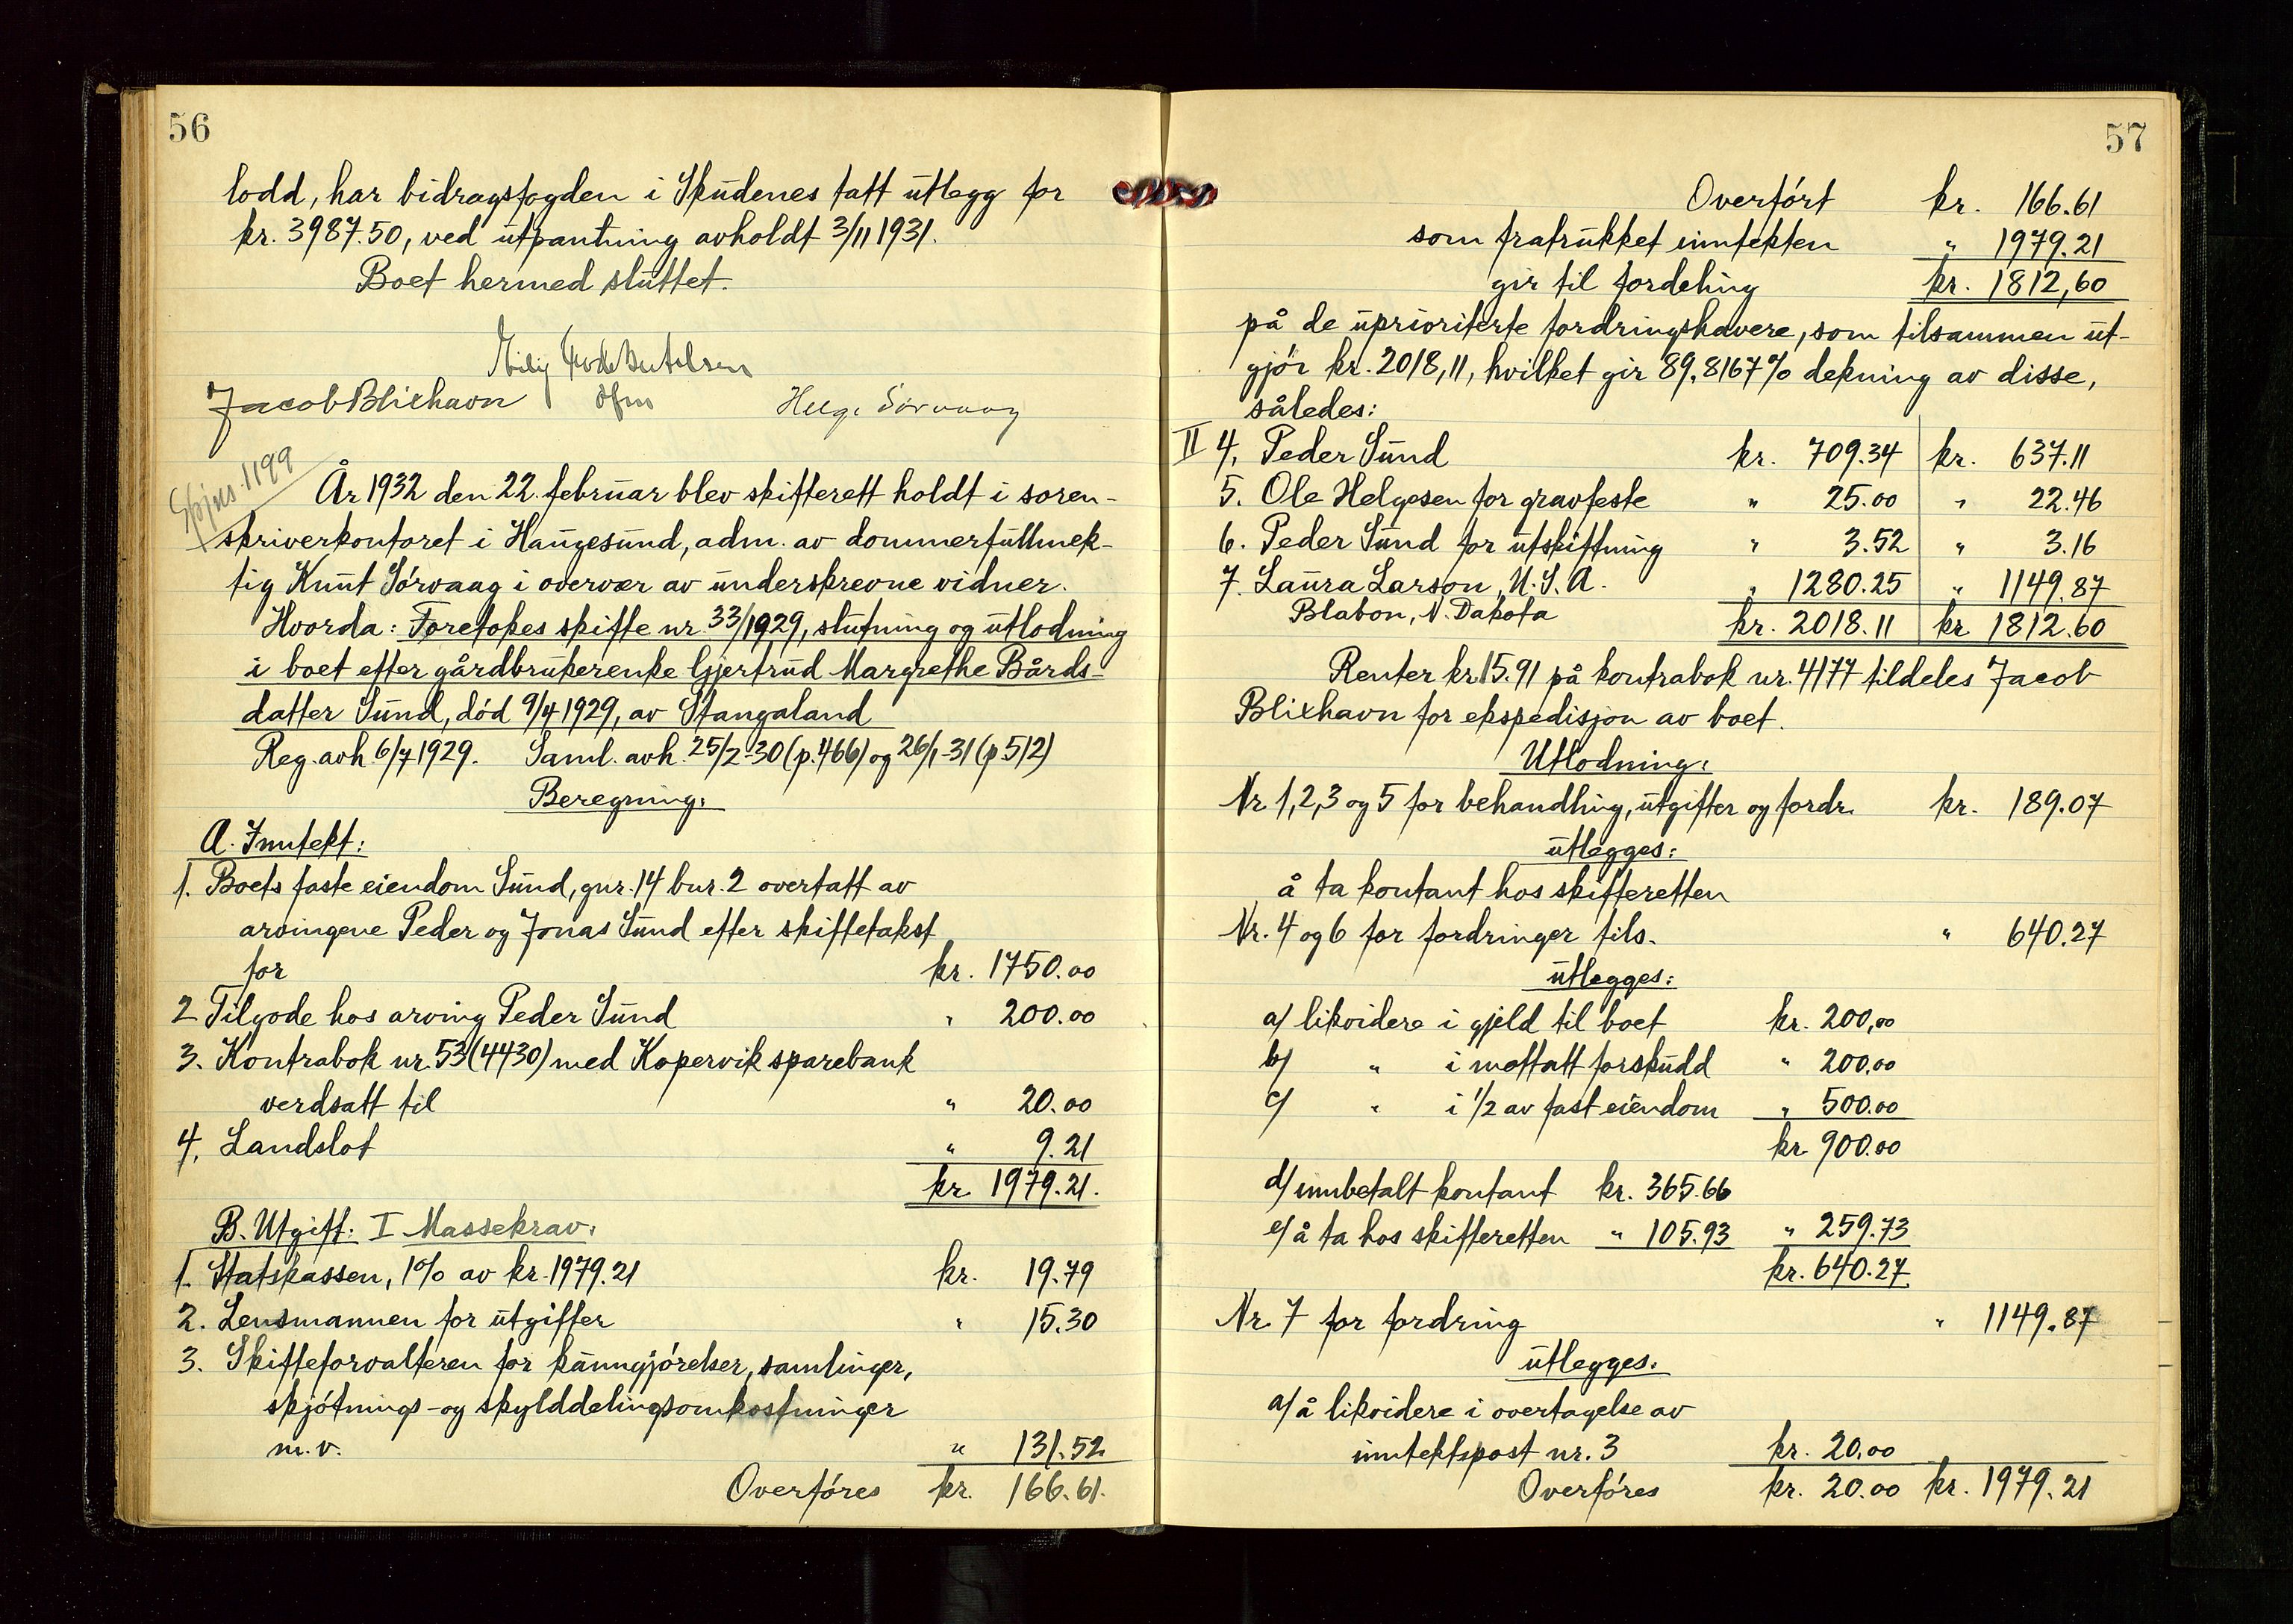 56
lodd, har bidragsfogden i Skudenes tatt utlegg for
kr. 3987.50, ved utpantning avholdt 3/11 1931.
Boet hermed sluttet.
Jacob Blixhavn Helge Sørvaag
1199
År 1932 den 22. februar blev skifterett holdt i soren-
skriverkontoret i Haugesund, adm. av dommerfullmek-
tig Knut Sørvaag i overvær av underskrevne vidner.
Hvorda: Foretokes skifte nr. 33/1929, slutning og utlodning
i boet efter gårdbrukerenke Gjertrud Margrethe Bårds-
datter Sund, død 9/4 1929, av Stangaland
Reg. avh. 6/7 1929. Saml. avh. 25/2-30 (p. 466) og 26/1-31 (p 512)
Beregning:
A. Inntekt:
1. Boets faste eiendom Sund, gnr. 14 bnr. 2 overtatt av
arvingene Peder og Jonas Sund efter skiftetakst
for kr. 1750.00
2 Tilgode hos arving Peder Sund " 200.00
3. Kontrabok nr. 53 (4430) med Kopervik sparebank
verdsatt til " 20.00
4. Landslot " 9.21
kr. 1979.21.
B. Utgift: I Massekrav:
1. Statskassen, 1% av kr. 1979.21 kr. 19.79
2. Lensmannen for utgifter " 15.30
3. Skifteforvalteren for kunngjørelser, samlinger,
skjøtnings- og skylddelingsomkostninger
m.v. " 131.52
Overføres kr. 166.61.
57
Overført kr. 166.61
som fratrukket inntekten " 1979.21
gir til fordeling kr. 1812,60
på de uprioriterte fordringshavere, som tilsammen ut-
gjør kr. 2018,11, hvilket gir 89.8167% dekning av disse,
således:
II 4. Peder Sund kr. 709.34 kr. 637.11
5. Ole Helgesen for gravfeste " 25.00 " 22.46
6. Peder Sund for utskiftning " 3.52 " 3.16
7. Laura Larson, U.S.A. " 1280.25 " 1149.87
Blabon, N. Dakota kr. 2018.11 kr 1812.60
Renter kr 15.91 på kontrabok nr. 4177 tildeles Jacob
Blixhavn for ekspedisjon av boet.
Utlodning:
Nr 1, 2, 3 og 5 for behandling, utgifter og fordr. kr. 189.07
utlegges:
å ta kontant hos skifteretten
Nr. 4 og 6 for fordringer tils. " 640.27
utlegges:
a/ likvidere i gjeld til boet kr. 200,00
b/ " i mottatt forskudd " 200.00
c/ " i 1/2 av fast eiendom " 500.00
kr. 900.00
d/ innbetalt kontant kr. 365.66
e/ å ta hos skifteretten " 105.93 " 259.73
kr. 640.27
Nr. 7 for fordring " 1149.87
utlegges.
a/ å likvidere i overtagelse av
inntektspost nr. 3 kr. 20.00
Overføres kr. 20.00 kr. 1979.21